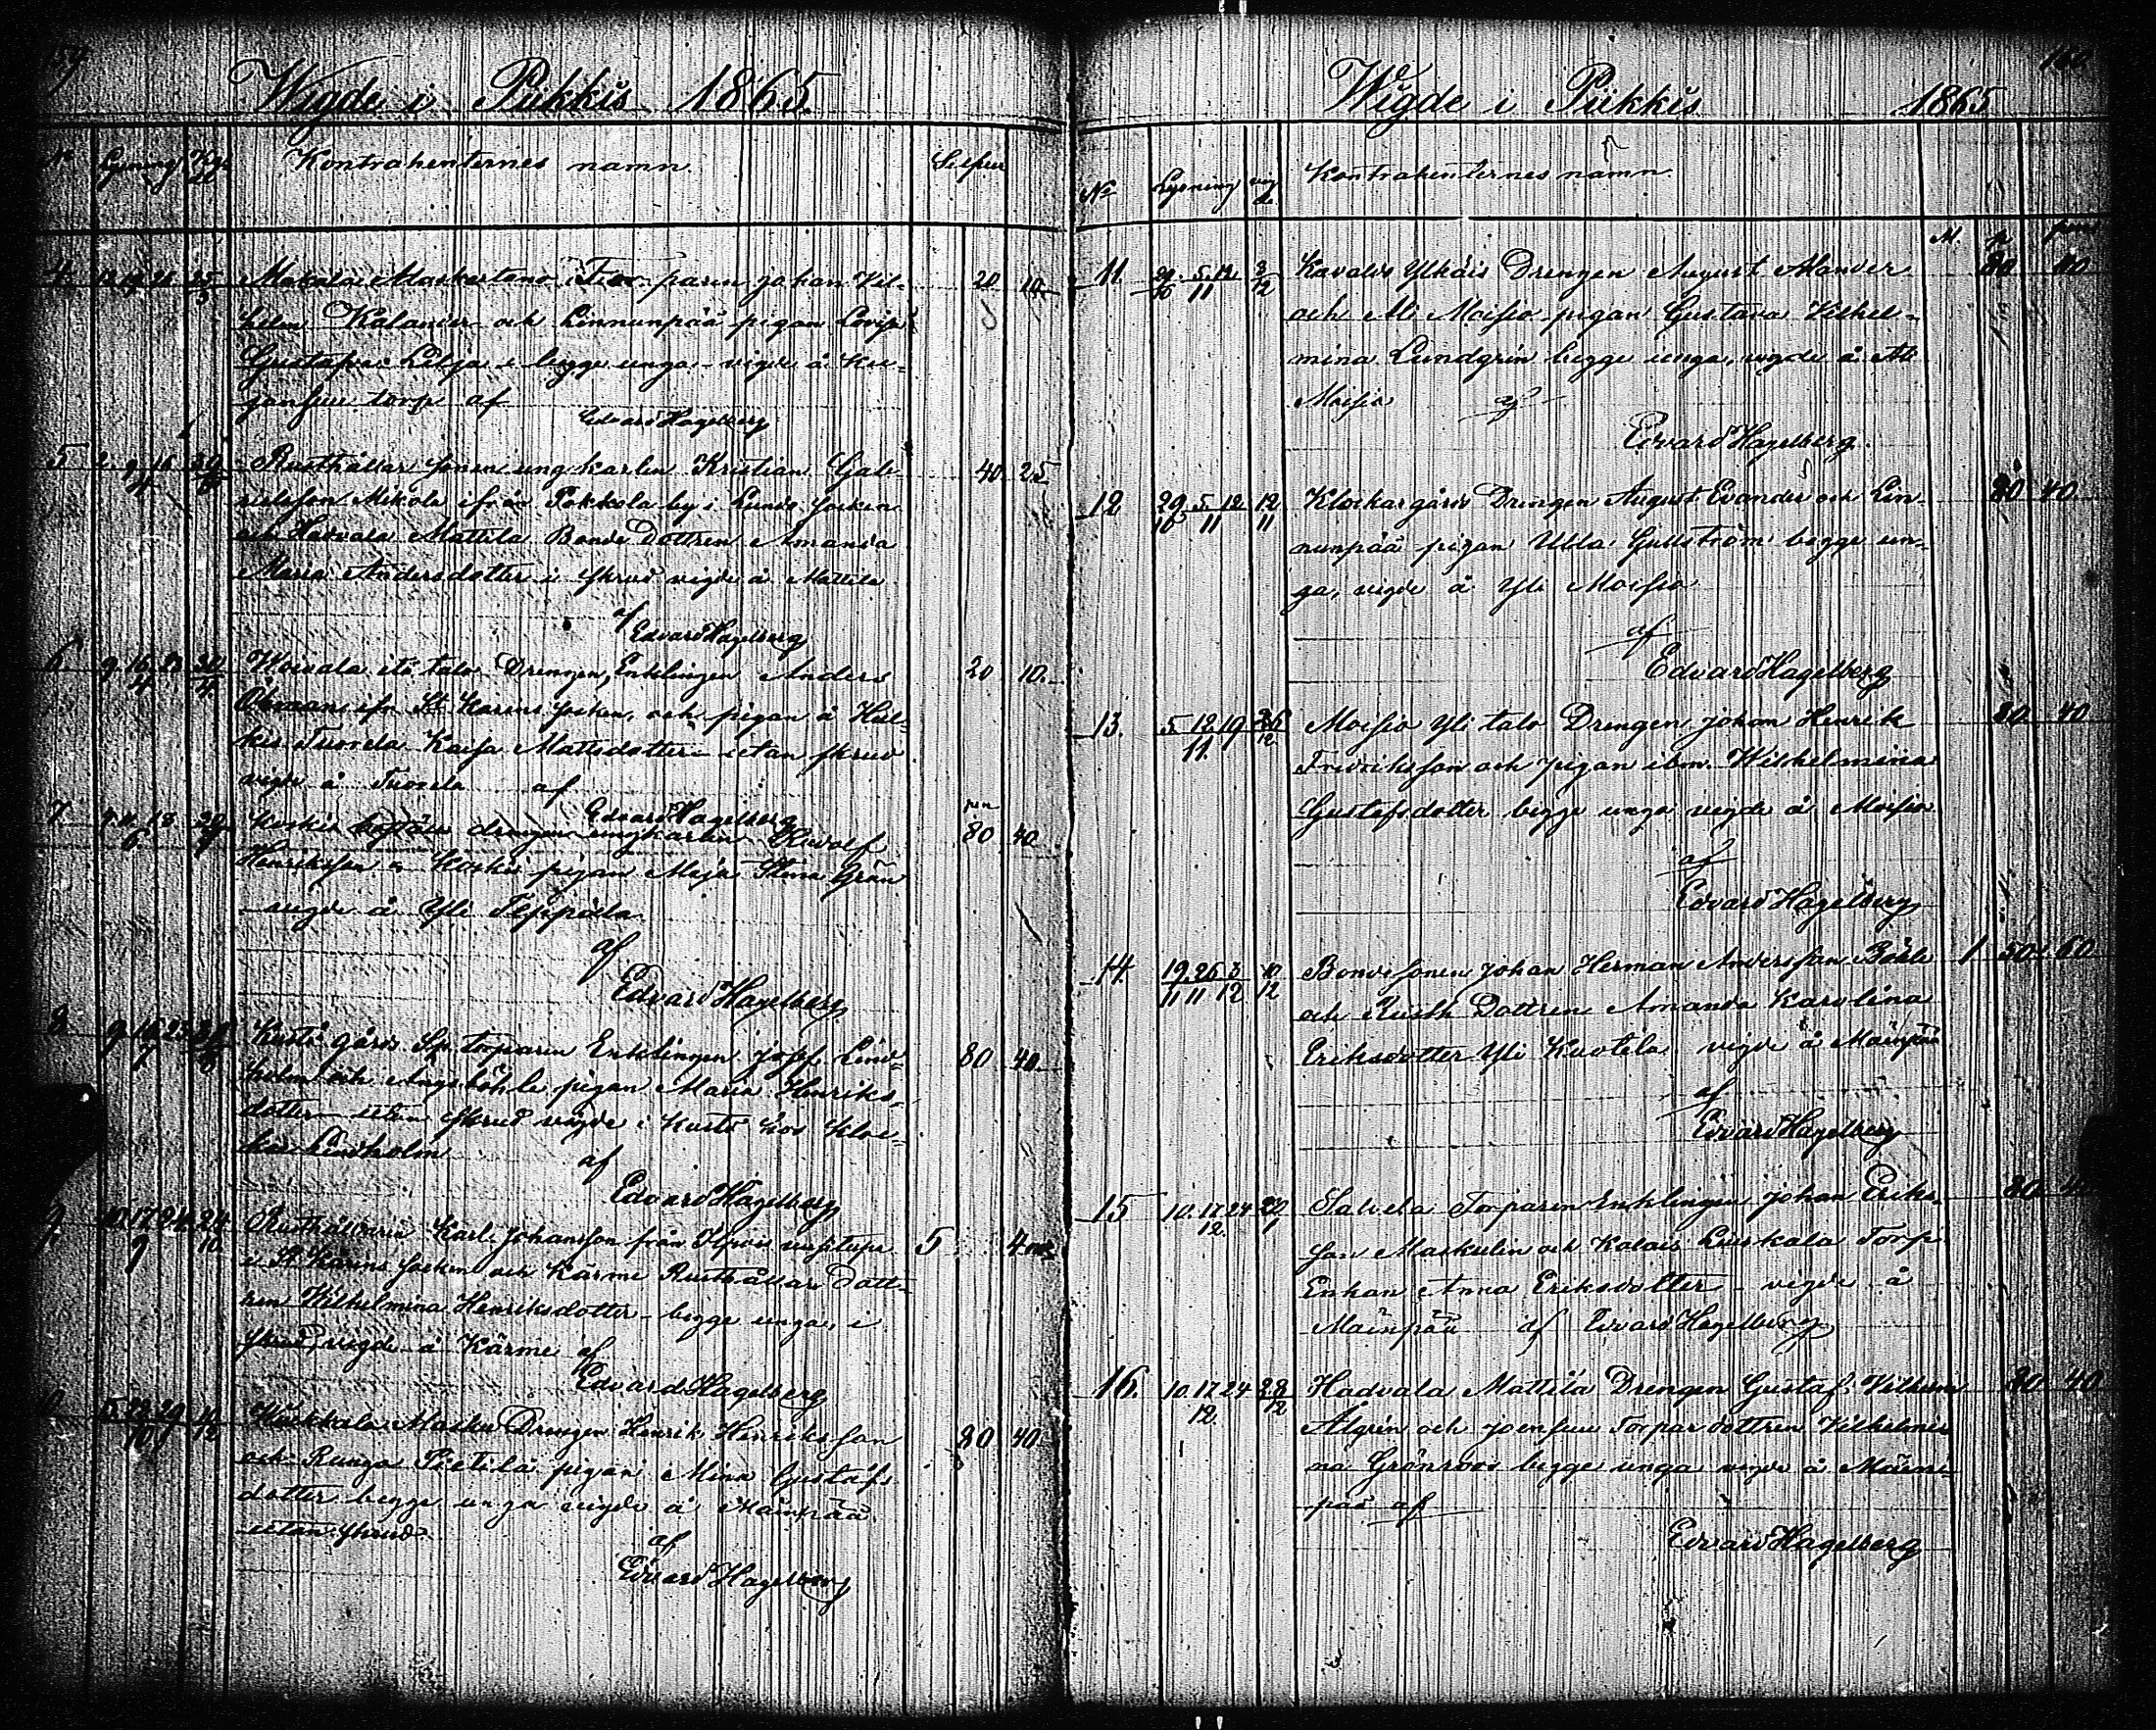 159
Wigde i Pikkis 1865.
No Lysning Vigs. Kontrahenternes namn
4 12 19 26 25/5 Makala Maskartano Torparen Johan Vil- 20 10
helm Kalander och Linnunpää pigan Lovisa
Gustafva Lilja begge unga vigde å
torp af
Edvard Hagelberg
5 2 9 16/4 Rusthållar sonen ungkarlen Kristian Gab- 40 25
rielsson Mikola ifrån Pokkola by i Lundo socken
och Hadvala Mattila Bonde Dottren Amanda
Maria Andersdotter i skrud vigde å Mattila
af
Edvard Hagelberg
6 9 16 23/4 30/4 talo Drengen, Enklingen Anders 20 10.
Öhman ifr. St. Karins socken, och pigan å
Tuorela Kaisa Mattsdotter utan skrud
vigde å Tuorela af
Edvard Hagelberg
7 4 11 18/6 drengen ungkarlen Rudolf 80 40
Henriksson o Koski pigan Maja Stina Grön
vigde å Yli Teppala
af
Edvard Hagelberg.
8 9 16 23/7 Kustö gårds Torparen Enklingen Josef Lind- 80 40
holm och pigan Maria Henriks-
dotter utan skrud vigde i Kustö hos Kloc-
kar Lindholm
af
Edvard Hagelberg
9 10 17 24/9 24/10 Rusthållaren Karl Johansson från 5 4
i St Karins socken och Kärme Rusthållare Dott-
ren Wilhelmina Henriksdotter begge unga, i
skrud, vigde å Kärme af
Edvard Hagelberg
15 22 29/10 Drengen Henrik Henriksson 80 40
och Runga Pietilä pigan Mina Gustafs-
dotter begge unga vigde å Mäinpää
utan skrud.
af
Edvard Hagelberg
Wigde i Pikkis 1865
No Lysning Kontrahenternes namn
11. 29/10 5 12/11 3/12 Drengen August Alander 80 40
och Ali Moisio pigan Gustava Vilhel-
mina Lundgrén begge unga, vigde å Ali
Moisio af
Edvard Hagelberg.
12 29/10 5 12/11 12/11 Klockargårds Drengen August Evander och Lin- 80 40
nunpää pigan Ulla Gullström begge un-
ga, vigde å Yli Moisio
af
Edvard Hagelberg
13. 5 12 19/11 26/12 Moisio Yli talo Drengen Johan Henrik 80 40
Fredriksson och pigan ibm. Wilhelmina
Gustafsdotter begge unga vigde å Moisio
af
Edvard Hagelberg
14. 19 26/11 3/12 10/12 Bonde sonen Johan Herman Andersson Böhle 1 50 60
och Rusth. Dottren Amanda Karolina
Eriksdotter Yli Kuotila vigde å Mäinpää
af
Edvard Hagelberg
15 10 17 24/12 Torparen Enklingen Johan Eriks- 80
son Maskulin och Torp.
Enkan Anna Eriksdotter vigde å
Mäinpää af Edvard Hagelberg
16. 10 17 24/12 28/12 Hadvala Mattila Drengen Gustaf Vilhelm 80 40
Algrén och Joensuu Torpar dottren Vilhelmi-
na Grönroos begge unga vigde å Mäin-
pää af
Edvard Hagelberg